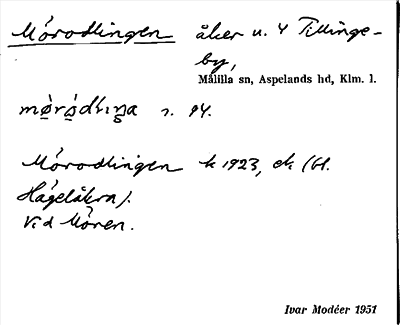 Mörodlingen åker u. 4 Tillinge-
by,
Målilla sn, Aspelands hd, Klm. l.
mörodliŋa s. 94.
Mörodlingen k 1923, ek (Gl.
Hagelåkra).
Vid Mören.
Ivar Modéer 1951